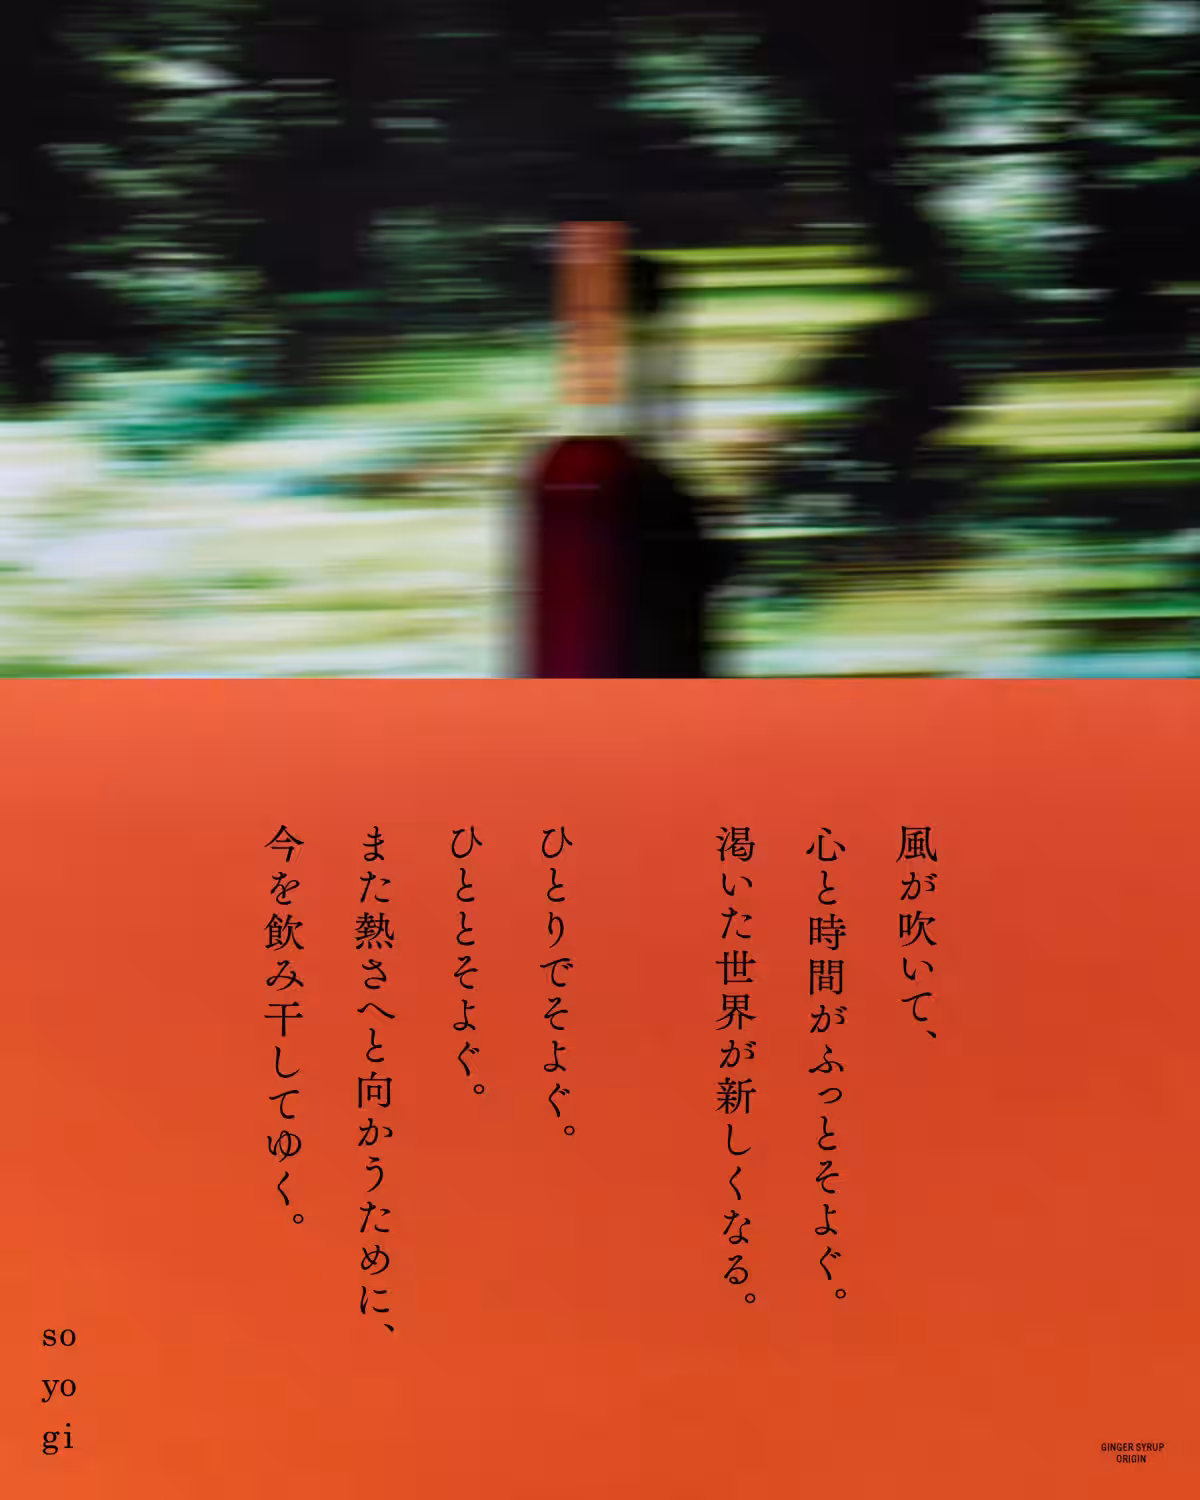 風が吹いて、
心と時間がふっとそよぐ。
渇いた世界が新しくなる。
ひとりでそよぐ。
ひととそよぐ。
また熱さへと向かうために、
今を飲み干してゆく。
so
yo
gi
GINGER SYRUP
ORIGIN